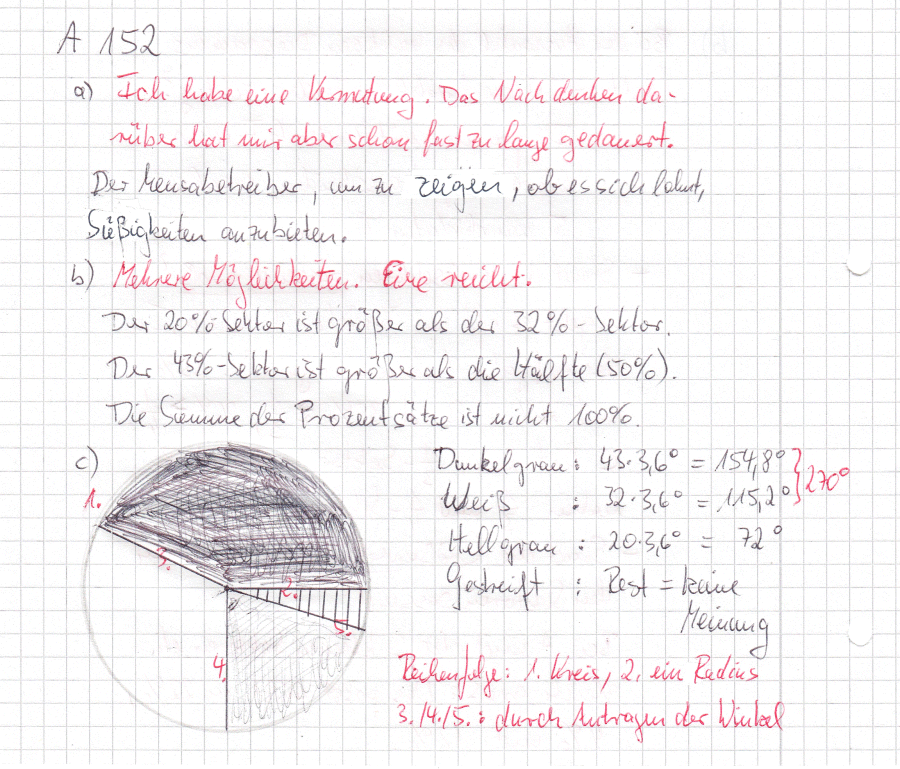 A 152
a) Ich habe eine Vermutung. Das Nachdenken da-
rüber hat mir aber schon fast zu lange gedauert.
Der Mensabetreiber, um zu zeigen, ob es sich lohnt,
Süßigkeiten anzubieten.
b) Mehrere Möglichkeiten. Eine reicht.
Der 20%-Sektor ist größer als der 32%-Sektor.
Der 43%-Sektor ist größer als die Hälfte (50%).
Die Summe der Prozentsätze ist nicht 100%.
c)
Dunkelgrau: 43·3,6° = 154,8° } 270°
Weiß : 32·3,6° = 115,2°
Hellgrau : 20·3,6° = 72°
Gestreift : Rest = keine
Meinung
1.
3.
2.
5.
4.
Reihenfolge: 1. Kreis, 2. ein Radius
3./4./5.: durch Antragen der Winkel